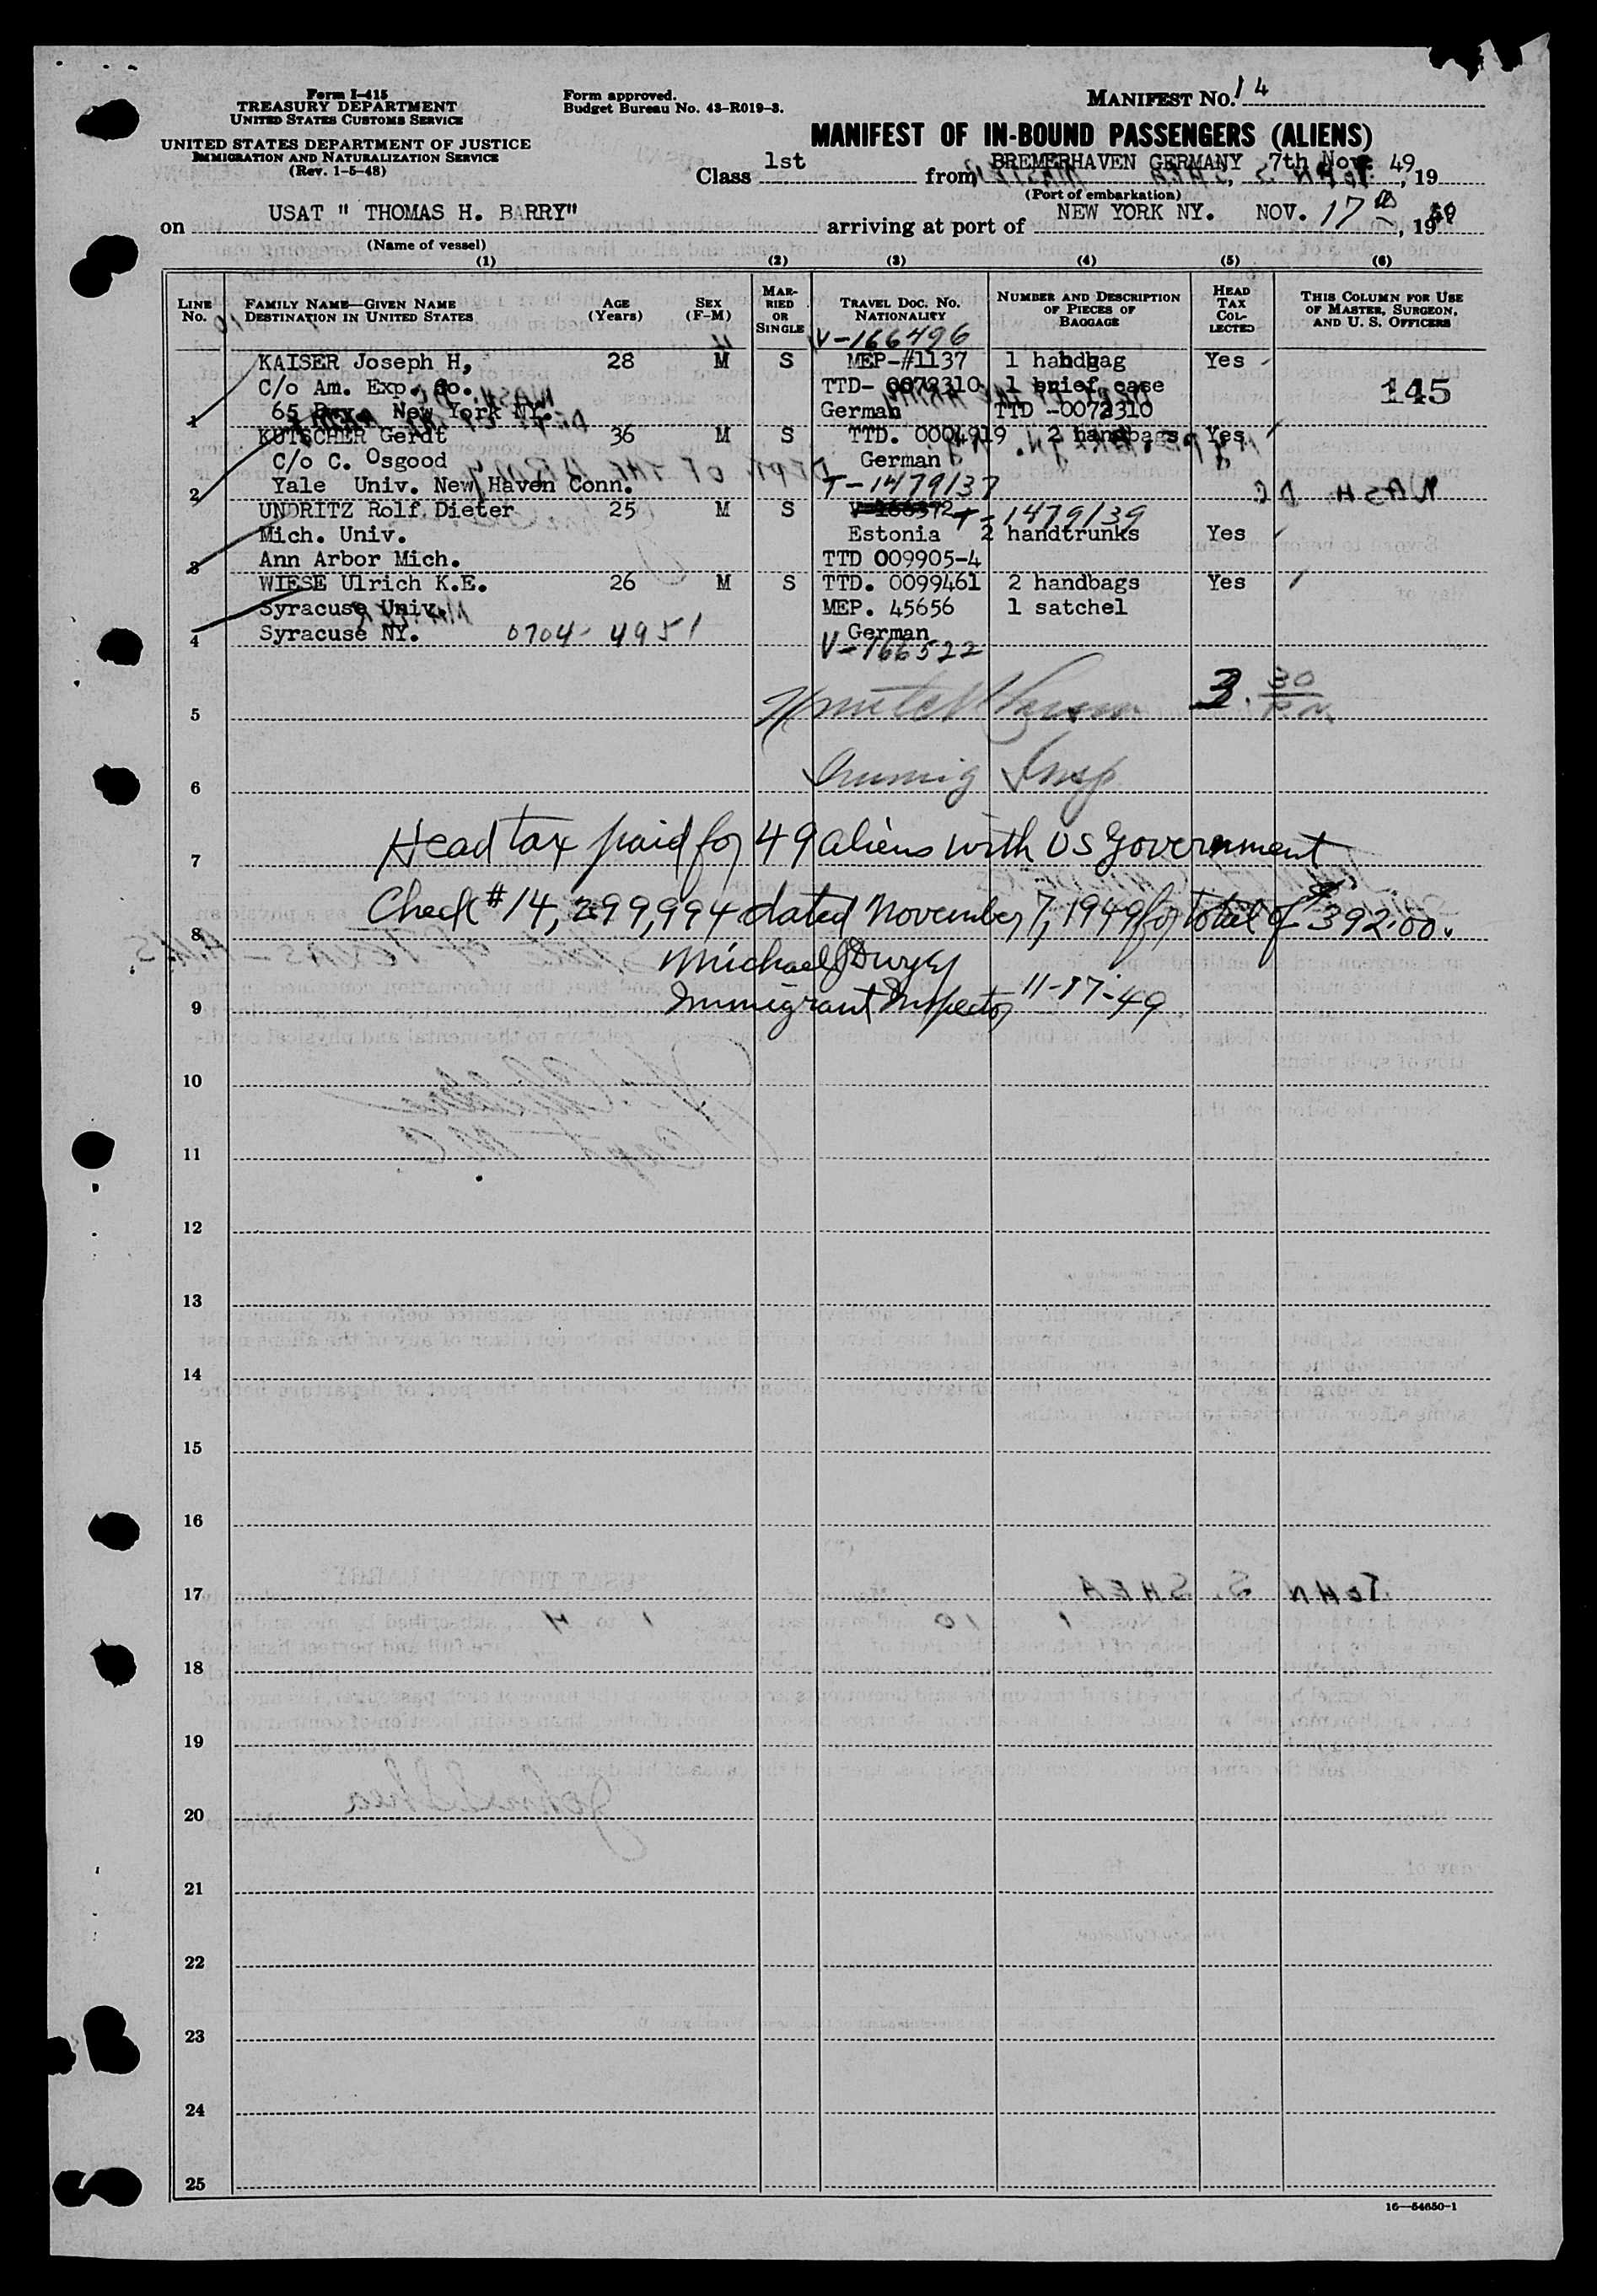 Form I-415
TREASURY DEPARTMENT
UNITED STATES CUSTOMS SERVICE
UNITED STATES DEPARTMENT OF JUSTICE
IMMIGRATION AND NATURALIZATION SERVICE
(Rev. 1-5-48)
Form approved.
Budget Bureau No. 43-R019-3.
MANIFEST No. 14
MANIFEST OF IN-BOUND PASSENGERS (ALIENS)
Class 1st from BREMERHAVEN GERMANY, 7th Nov. 49, 19
(Port of embarkation)
on USAT " THOMAS H. BARRY" arriving at port of NEW YORK NY. NOV. 17th, 19
(Name of vessel)
(1) (2) (3) (4) (5) (6)
LINE No. FAMILY NAME—GIVEN NAME DESTINATION IN UNITED STATES AGE (Years) SEX (F-M) MARRIED OR SINGLE TRAVEL DOC. NO. NATIONALITY NUMBER AND DESCRIPTION OF PIECES OF BAGGAGE HEAD TAX COLLECTED THIS COLUMN FOR USE OF MASTER, SURGEON, AND U. S. OFFICERS
V-166496
KAISER Joseph H, 28 M S MEP-#1137 1 handbag Yes
C/o Am. Exp. Co. TTD- 0072310 1 brief case 145
1 65 Bwy. New York NY. German TTD -0072310
KUTSCHER Gerdt 36 M S TTD. 0004919 2 handbags Yes
C/o C. Osgood German
2 Yale Univ. New Haven Conn. T-1479137
UNDRITZ Rolf Dieter 25 M S V-166372 T-1479139
Mich. Univ. Estonia 2 handtrunks Yes
3 Ann Arbor Mich. TTD 009905-4
WIESE Ulrich K.E. 26 M S TTD. 0099461 2 handbags Yes
Syracuse Univ. MEP. 45656 1 satchel
4 Syracuse NY. 0704-4951 German
V-166522
5 3.30 P.M.
6 Immig Insp
7 Head tax paid for 49 aliens with US Government
8 Check #14,299,994 dated November 7, 1949 for total of $392.00.
Michael J Dwyer
9 Immigrant Inspector 11-17-49
10
11
12
13
14
15
16
17
18
19
20
21
22
23
24
25
16—54650-1